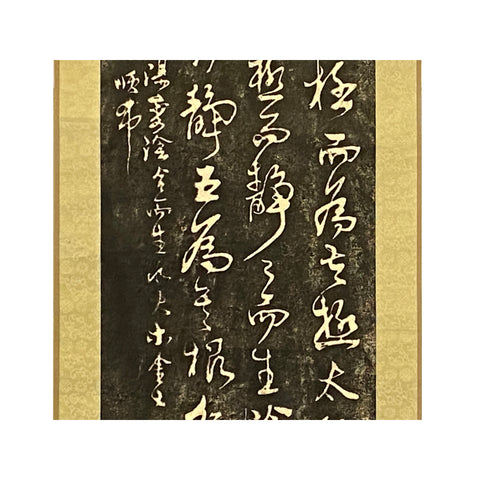 極而為極太
極而靜々而生陰
靜互為其根分
陽變陰合而生水火木金土
順布